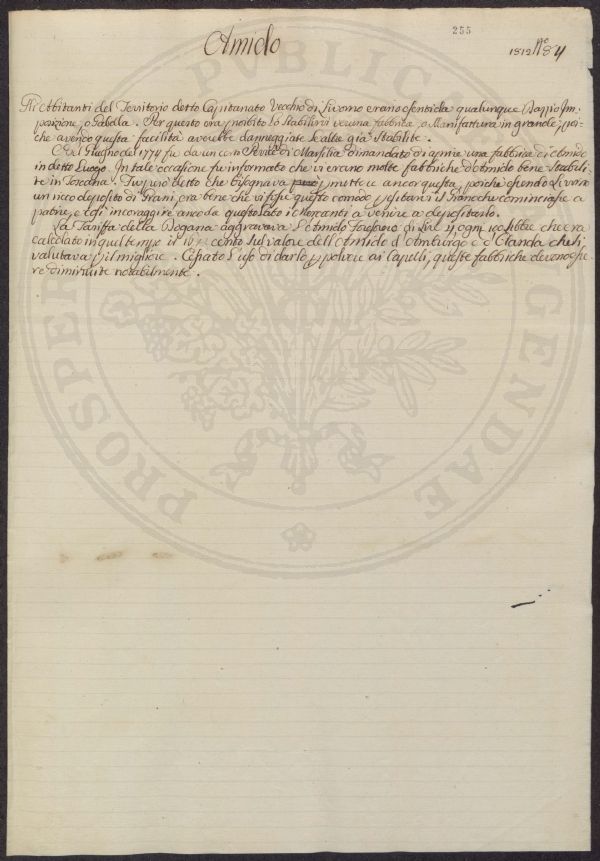 255
Amido
1812 N.º 84
Gli Abitanti del Territorio detto Capitanato Vecchio di Livorno erano esenti da qualunque Dazzio Im-
posizione, o Gabella. Per questo era proibito lo Stabilirvi veruna fabbrica, o Manifattura in grande, poi-
che avendo questa facilità averebbe danneggiate le altre già Stabilite.
Nel Giugno del 1774 fu da un certo di Marsilia dimandato di aprire una fabbrica di Amido
in detto Luogo. In tale occasione fu informato che vi erano molte fabbriche d'Amido bene Stabili-
te in Toscana. Fu però detto che bisognava permettere ancor questa, perchè essendo Livorno
un ricco deposito di Grani, era bene che vi fosse questo comodo p esitarvi il Grano che cominciasse a
patire, e così incoraggire ancora da questo lato i Mercanti a venire a depositarlo.
La Tariffa della Dogana aggravava l'Amido Forestiero di Lire 4 ogni 100 libbre che era
calcolato in quel tempo il 16 p cento sul valore dell'Amido d'Amburgo e d'Olanda che si
valutava p il migliore. Cessato l'uso di darlo p polvere ai Capelli, queste fabbriche devono esse-
re diminuite notabilmente.
PUBLICAE
PROSPERITATI
AUGENDAE